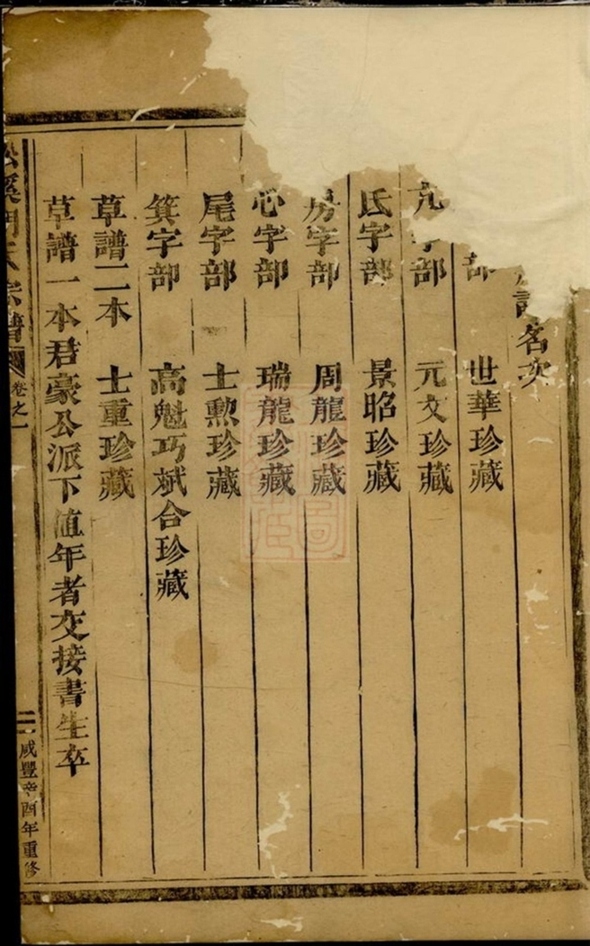 譜名次
部 世華珍藏
亢字部 元文珍藏
氐字部 景昭珍藏
房字部 周龍珍藏
心字部 瑞龍珍藏
尾字部 士勲珍藏
箕字部 高魁巧斌合珍藏
草譜二本 士重珍藏
草譜一本君豪公派下值年者交接書生卒
溪 氏宗譜 卷之一 二 咸豐辛酉年重修